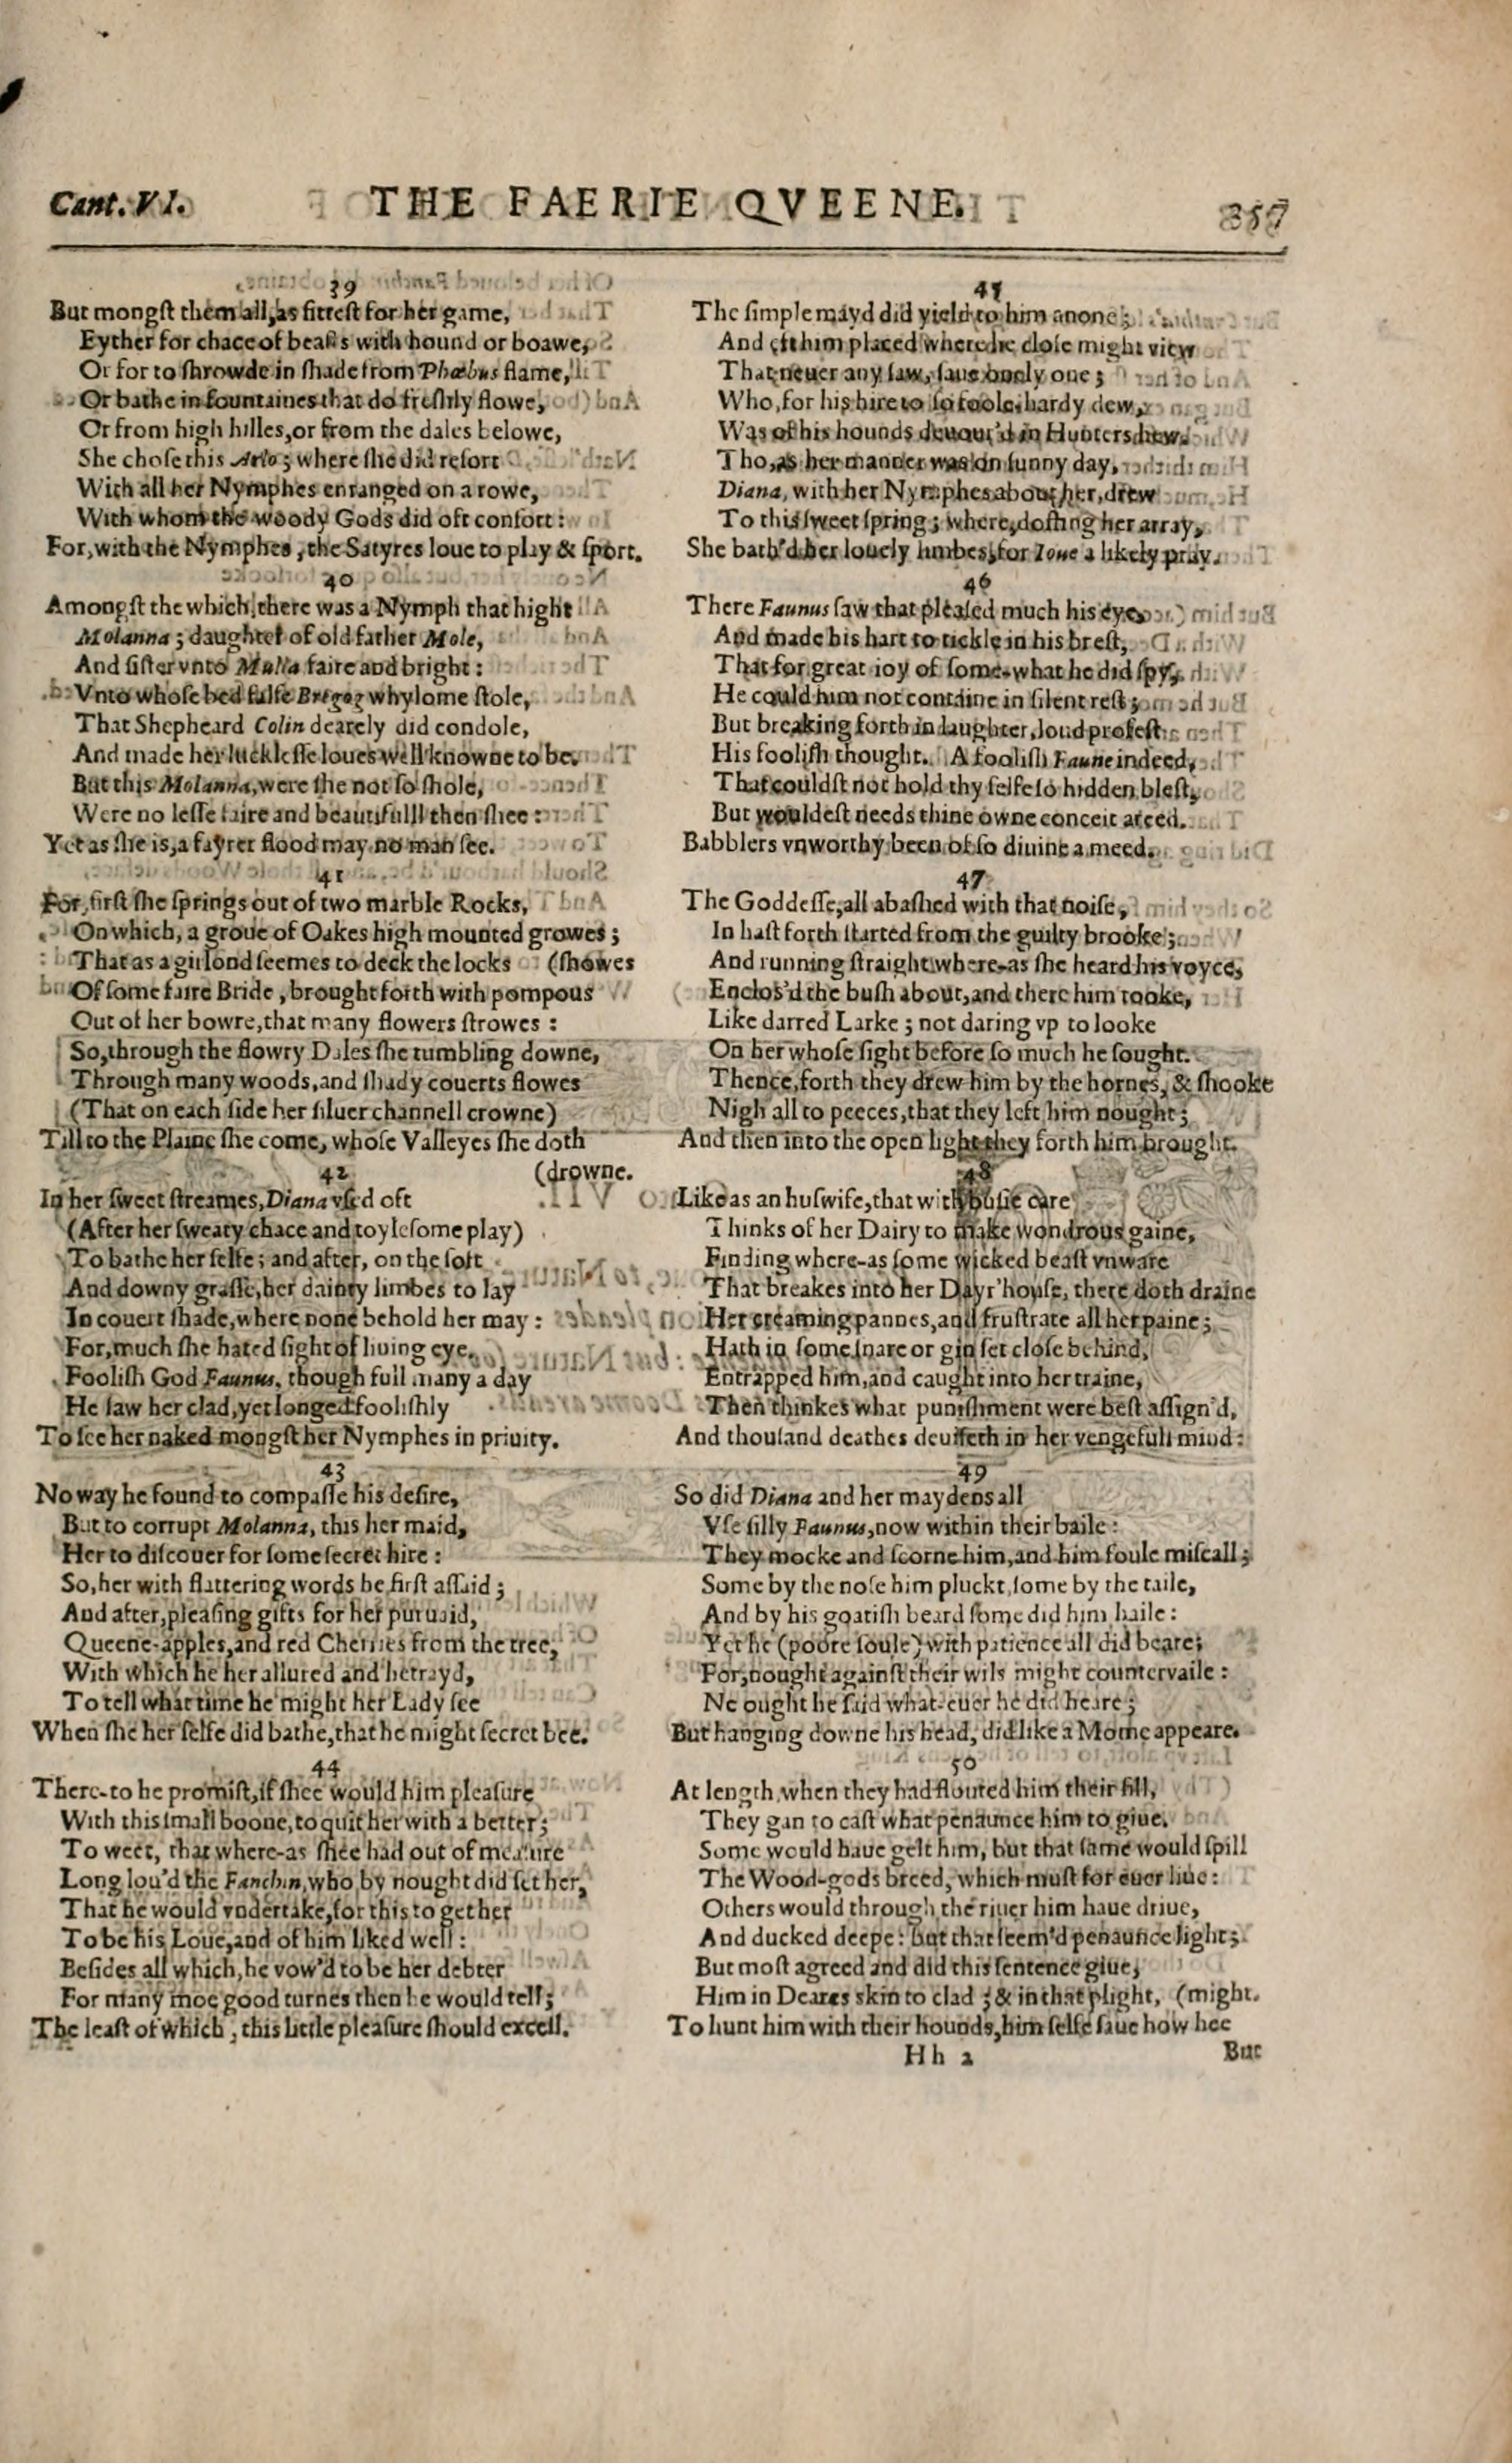 Cant. VI. THE FAERIE QVEENE. 357
39
But mongſt them all, as fitteſt for her game,
Eyther for chace of beaſts with hound or boawe,
Or for to ſhrowde in ſhade from Phœbus flame,
Or bathe in fountaines that do freſhly flowe,
Or from high hilles, or from the dales belowe,
She choſe this Arlo; where ſhe did reſort
With all her Nymphes enranged on a rowe,
With whom the woody Gods did oft conſort:
For, with the Nymphes, the Satyres loue to play & ſport.
40
Amongſt the which, there was a Nymph that hight
Molanna; daughter of old father Mole,
And ſiſter vnto Mulla faire and bright:
Vnto whoſe bed falſe Bregog whylome ſtole,
That Shepheard Colin dearely did condole,
And made her luckleſſe loues well knowne to be.
But this Molanna, were ſhe not ſo ſhole,
Were no leſſe faire and beautifulll then ſhee:
Yet as ſhe is, a fayrer flood may no man ſee.
41
For, firſt ſhe ſprings out of two marble Rocks,
On which, a groue of Oakes high mounted growes;
That as a girlond ſeemes to deck the locks (ſhowes
Of ſome faire Bride, brought forth with pompous
Out of her bowre, that many flowers ſtrowes:
So, through the flowry Dales ſhe tumbling downe,
Through many woods, and ſhady couerts flowes
(That on each ſide her ſiluer channell crowne)
Till to the Plaine ſhe come, whoſe Valleyes ſhe doth
(drowne.
42
In her ſweet ſtreames, Diana vſed oft
(After her ſweaty chace and toyleſome play)
To bathe her ſelfe; and after, on the ſoft
And downy graſſe, her dainty limbes to lay
In couert ſhade, where none behold her may:
For, much ſhe hated ſight of liuing eye.
Fooliſh God Faunus, though full many a day
He ſaw her clad, yet longed fooliſhly
To ſee her naked mongſt her Nymphes in priuity.
43
No way he found to compaſſe his deſire,
But to corrupt Molanna, this her maid,
Her to diſcouer for ſome ſecret hire:
So, her with flattering words he firſt aſſaid;
And after, pleaſing gifts for her puruaid,
Queene-apples, and red Cherries from the tree,
With which he her allured and betrayd,
To tell what time he might her Lady ſee
When ſhe her ſelfe did bathe, that he might ſecret bee.
44
There-to he promiſt, if ſhee would him pleaſure
With this ſmall boone, to quit her with a better;
To weet, that where-as ſhee had out of meaſure
Long lou'd the Fanchin, who by nought did ſet her,
That he would vndertake, for this to get her
To be his Loue, and of him liked well:
Beſides all which, he vow'd to be her debter
For many moe good turnes then he would tell;
The leaſt of which, this little pleaſure ſhould excell.
45
The ſimple mayd did yield to him anone;
And eft him placed where he cloſe might view
That neuer any ſaw, ſaue onely one;
Who, for his hire to ſo foole-hardy dew,
Was of his hounds deuour'd in Hunters hew.
Tho, as her manner was on ſunny day,
Diana, with her Nymphes about her, drew
To this ſweet ſpring; where, doffing her array,
She bath'd her louely limbes, for Ioue a likely pray.
46
There Faunus ſaw that pleaſed much his eye,
And made his hart to tickle in his breſt,
That for great ioy of ſome-what he did ſpy,
He could him not containe in ſilent reſt;
But breaking forth in laughter, loud profeſt
His fooliſh thought. A fooliſh Faune indeed,
That couldſt not hold thy ſelfe ſo hidden bleſt,
But wouldeſt needs thine owne conceit areed.
Babblers vnworthy been of ſo diuine a meed.
47
The Goddeſſe, all abaſhed with that noiſe,
In haſt forth ſtarted from the guilty brooke;
And running ſtraight where-as ſhe heard his voyce,
Enclos'd the buſh about, and there him tooke,
Like darred Larke; not daring vp to looke
On her whoſe ſight before ſo much he ſought.
Thence, forth they drew him by the hornes, & ſhooke
Nigh all to peeces, that they left him nought;
And then into the open light they forth him brought.
48
Like as an huſwife, that with buſie care
Thinks of her Dairy to make wondrous gaine,
Finding where-as ſome wicked beaſt vnware
That breakes into her Dayr'houſe, there doth draine
Her creaming pannes, and fruſtrate all her paine;
Hath in ſome ſnare or gin ſet cloſe behind,
Entrapped him, and caught into her traine,
Then thinkes what puniſhment were beſt aſſign'd,
And thouſand deathes deuiſeth in her vengefull mind:
49
So did Diana and her maydens all
Vſe ſilly Faunus, now within their baile:
They mocke and ſcorne him, and him foule miſcall;
Some by the noſe him pluckt, ſome by the taile,
And by his goatiſh beard ſome did him haile:
Yet he (poore ſoule) with patience all did beare;
For, nought againſt their wils might countervaile:
Ne ought he ſaid what-euer he did heare;
But hanging downe his head, did like a Mome appeare.
50
At length, when they had flouted him their fill,
They gan to caſt what penaunce him to giue.
Some would haue gelt him, but that ſame would ſpill
The Wood-gods breed, which muſt for euer liue:
Others would through the riuer him haue driue,
And ducked deepe: but that ſeem'd penaunce light;
But moſt agreed and did this ſentence giue,
Him in Deares skin to clad; & in that plight, (might.
To hunt him with their hounds, him ſelfe ſaue how hee
Hh 2 But